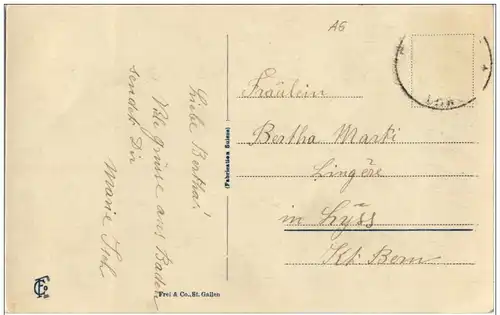 AG
Liebe Bertha!
Viele grüsse aus Baden
sendet Dir
Marie
Fräulein
Bertha Marti
Lingère
in Lÿss
Kt. Bern
(Fabrication Suisse)
Frei & Co., St. Gallen